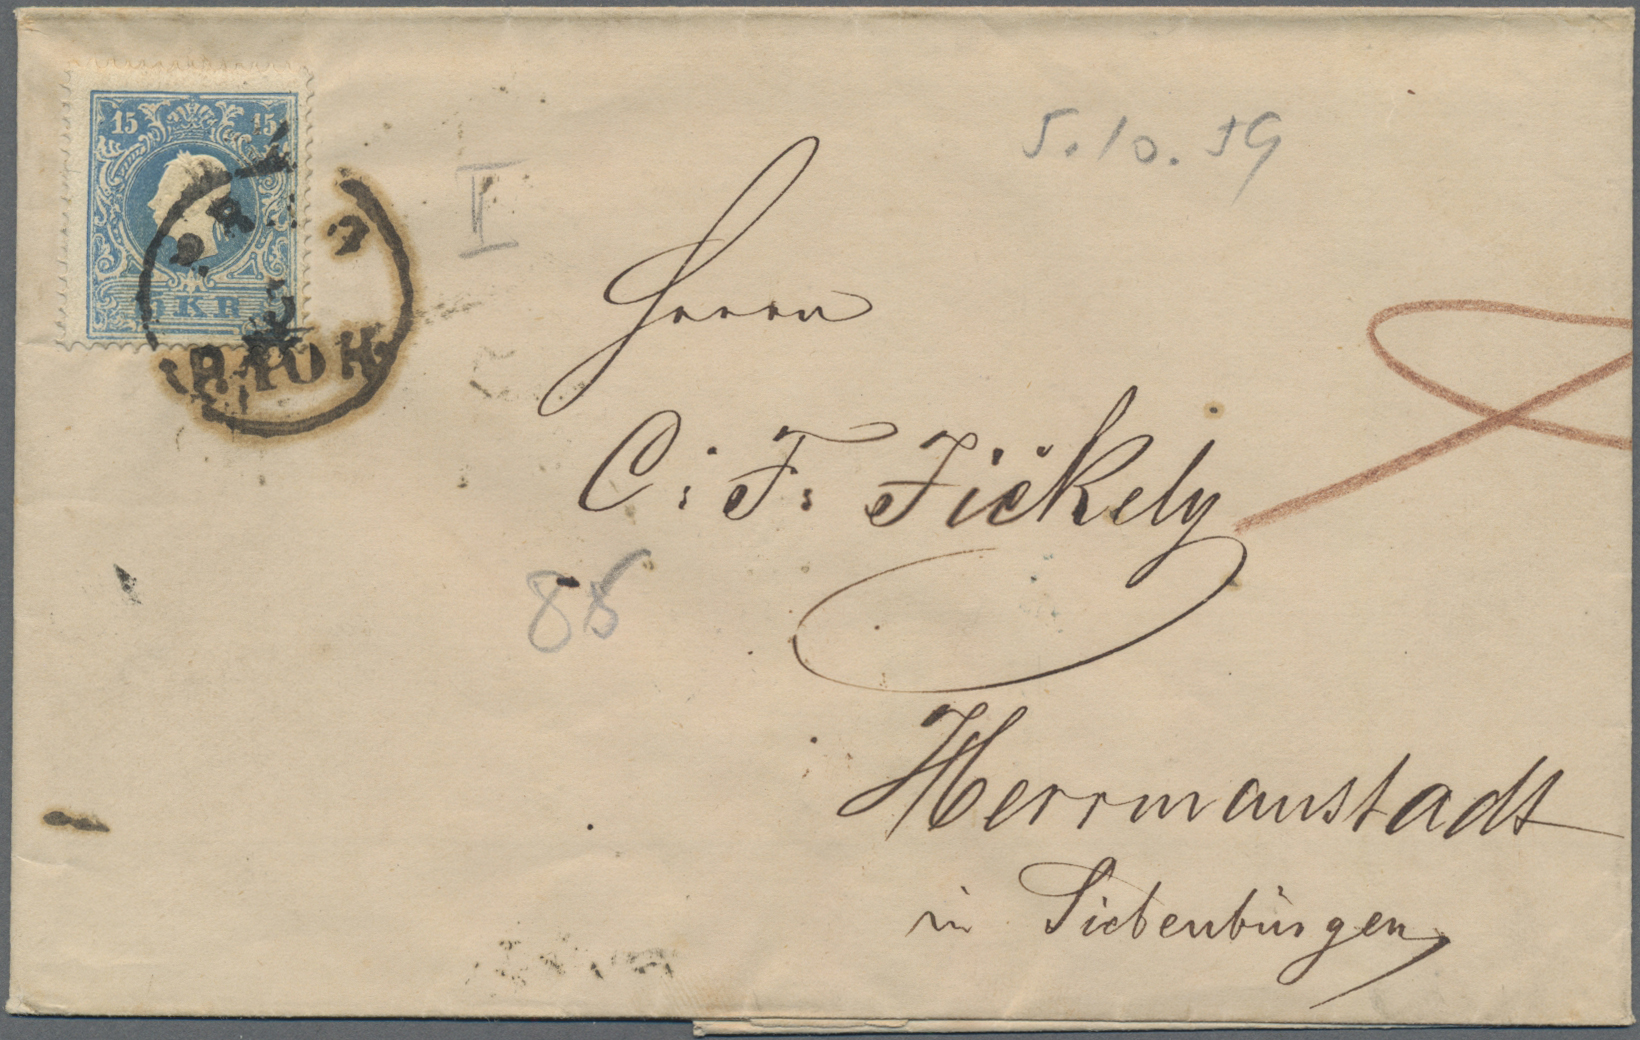 15 15
KR
5.10.59
II
Herrn
C: F: Fickely
88
Herrmanstadt
in Siebenbürgen